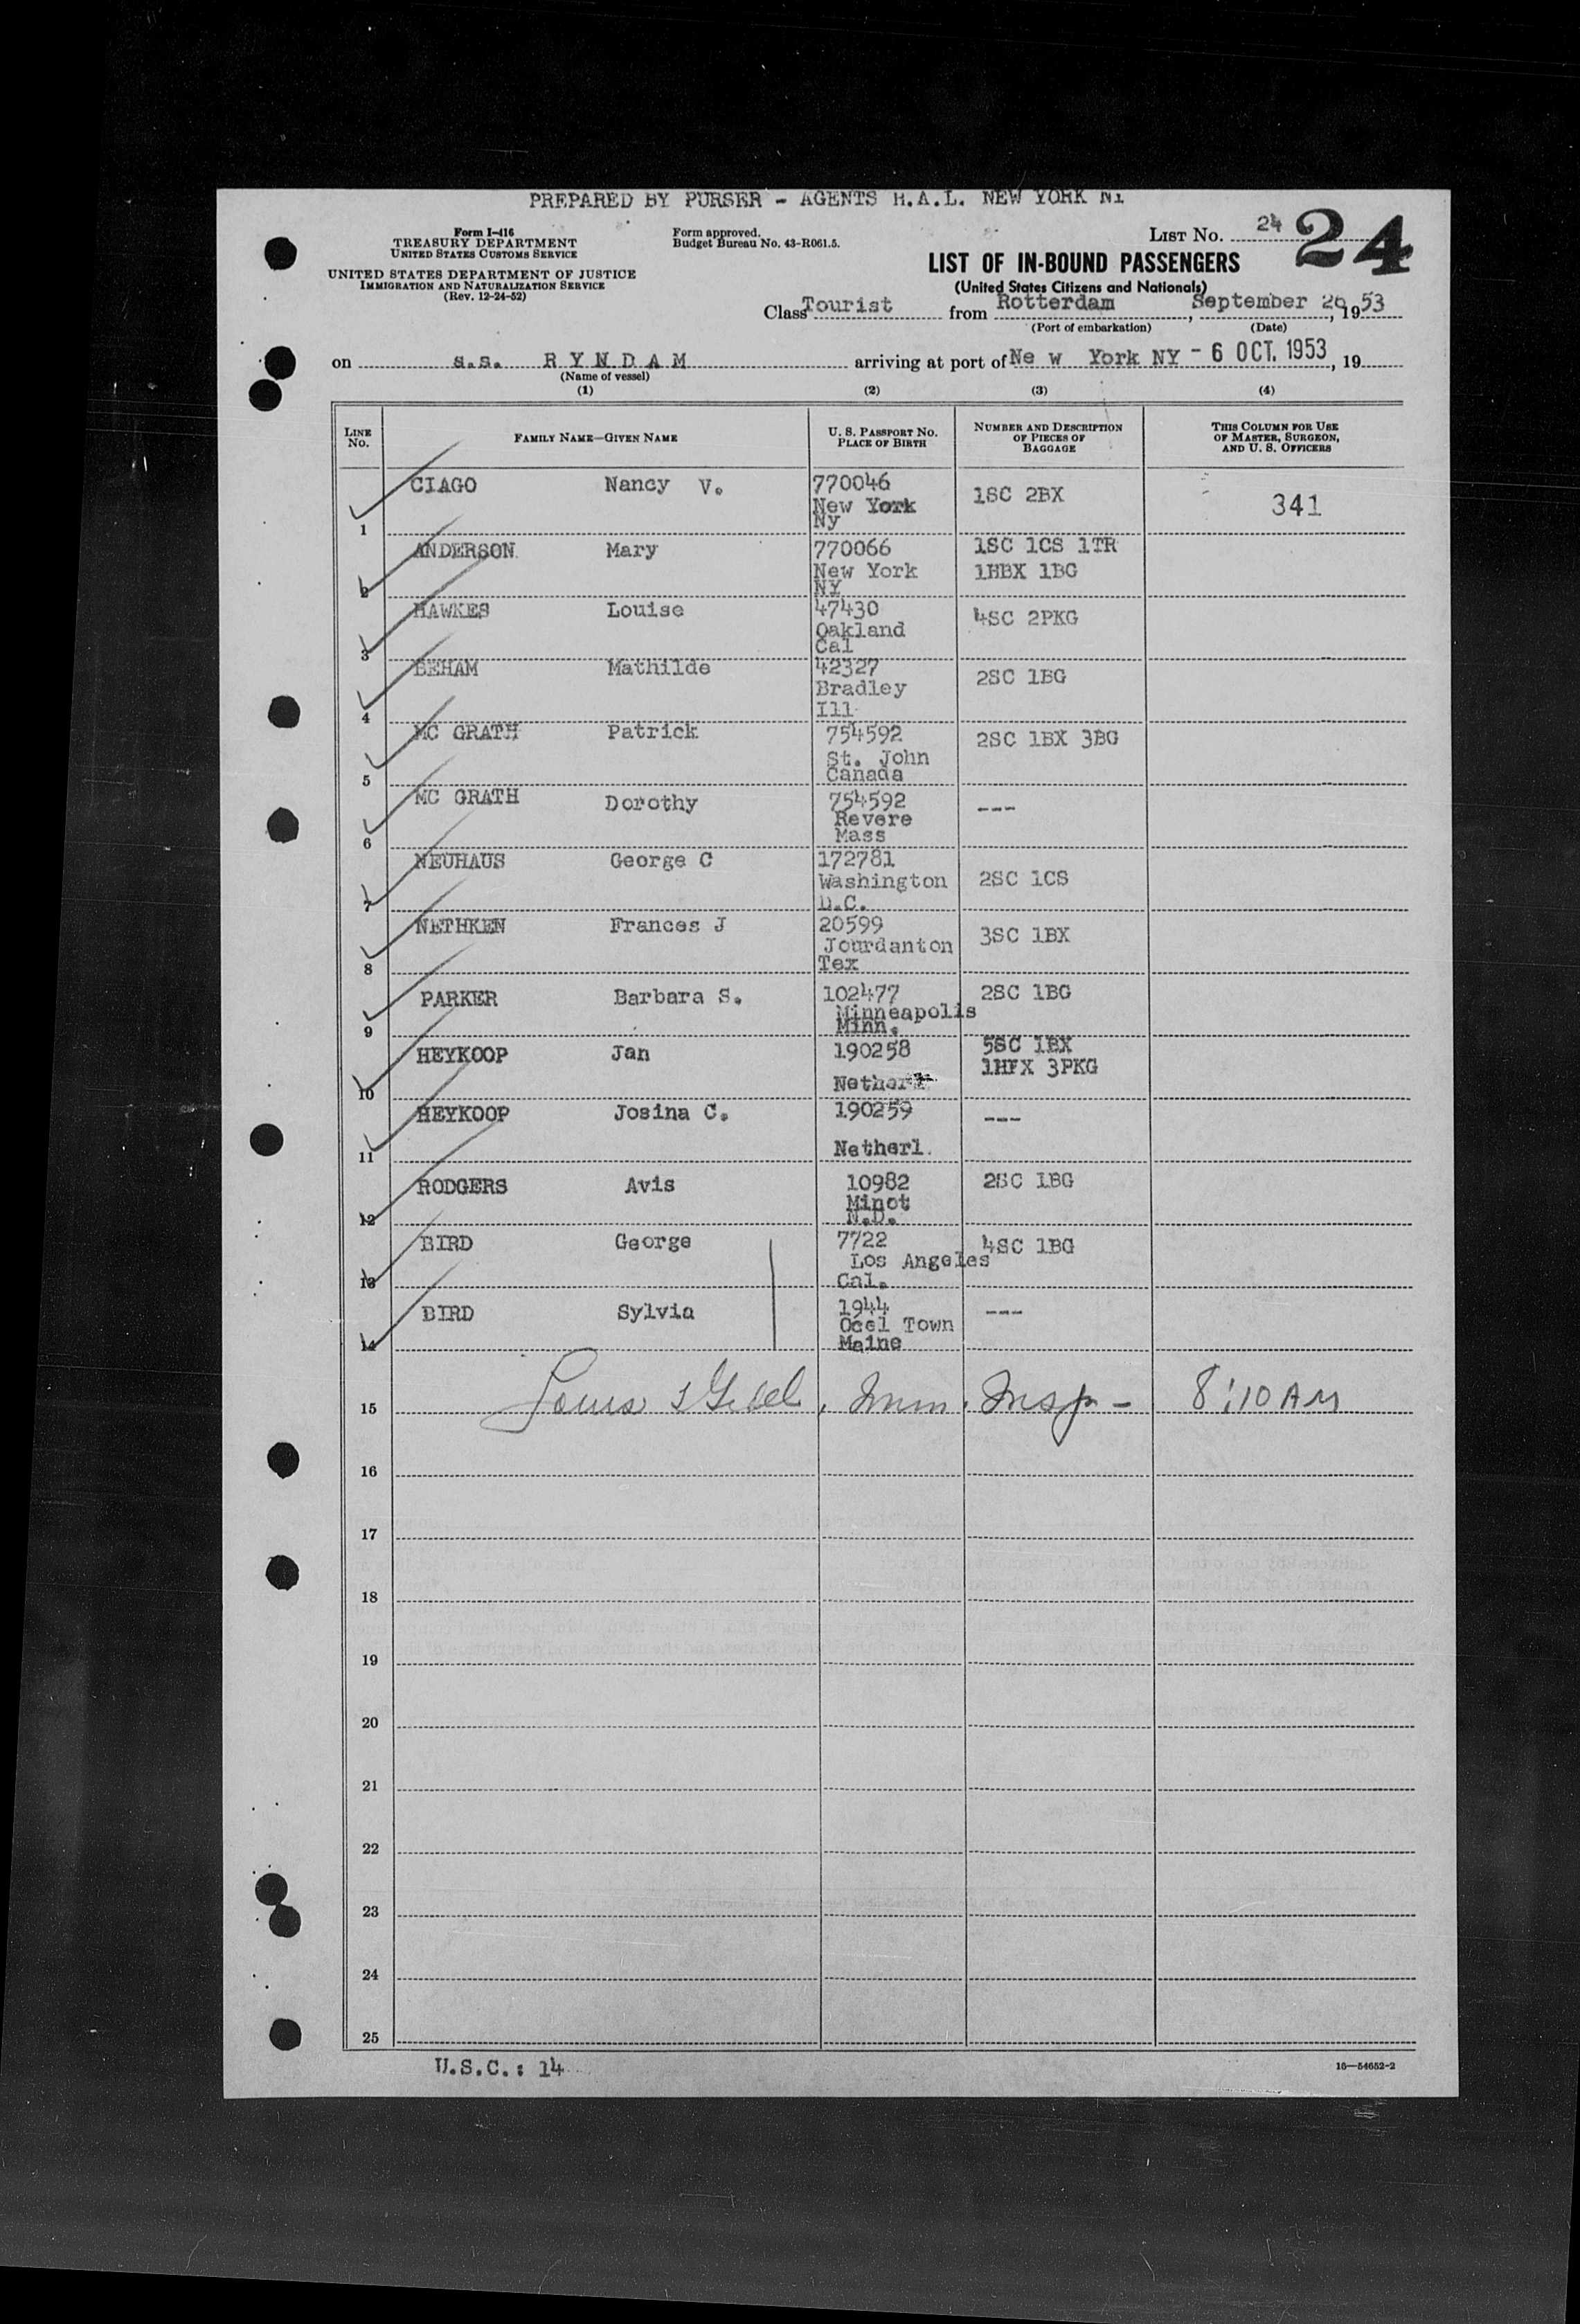 PREPARED BY PURSER - AGENTS H.A.L. NEW YORK NY
Form I-416
TREASURY DEPARTMENT
UNITED STATES CUSTOMS SERVICE
UNITED STATES DEPARTMENT OF JUSTICE
IMMIGRATION AND NATURALIZATION SERVICE
(Rev. 12-24-52)
Form approved.
Budget Bureau No. 43-R061.5.
LIST NO. 24 24
LIST OF IN-BOUND PASSENGERS
(United States Citizens and Nationals)
Class Tourist from Rotterdam, September 26, 1953
(Port of embarkation) (Date)
on s.s. RYNDAM arriving at port of Ne w York NY - 6 OCT. 1953, 19
(Name of vessel)
(1) (2) (3) (4)
LINE NO. FAMILY NAME—GIVEN NAME U. S. PASSPORT NO. PLACE OF BIRTH NUMBER AND DESCRIPTION OF PIECES OF BAGGAGE THIS COLUMN FOR USE OF MASTER, SURGEON, AND U. S. OFFICERS
1 CIAGO Nancy V. 770046 New York Ny 1SC 2BX 341
2 ANDERSON Mary 770066 New York NY 1SC 1CS 1TR 1HBX 1BG
3 HAWKES Louise 47430 Oakland Cal 4SC 2PKG
4 BEHAM Mathilde 42327 Bradley Ill 2SC 1BG
5 MC GRATH Patrick 754592 St. John Canada 2SC 1BX 3BG
6 MC GRATH Dorothy 754592 Revere Mass ---
7 NEUHAUS George C 172781 Washington D.C. 2SC 1CS
8 NETHKEN Frances J 20599 Jourdanton Tex 3SC 1BX
9 PARKER Barbara S. 102477 Minneapolis Minn. 2SC 1BG
10 HEYKOOP Jan 190258 5SC 1BX 3PKG
11 HEYKOOP Josina C. 190259 Netherl. ---
12 RODGERS Avis 10982 Minot N.D. 2SC 1BG
13 BIRD George 7722 Los Angeles Cal. 4SC 1BG
14 BIRD Sylvia 1944 Town Maine ---
15 Imm. Insp - 8:10 AM
16
17
18
19
20
21
22
23
24
25
U.S.C.: 14
16—54652-2